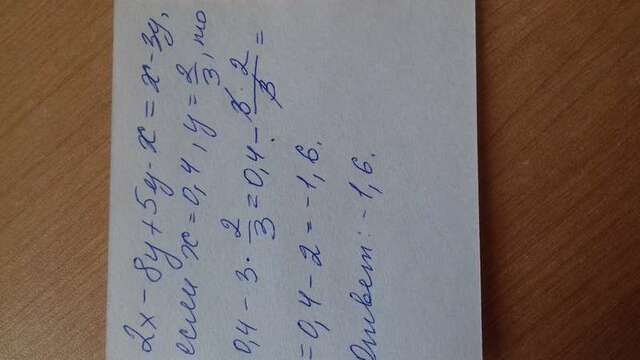 2x - 8y + 5y - x = x - 3y.
если x = 0,4, y = 2/3, то
0,4 - 3 · 2/3 = 0,4 - 3·2/3 =
= 0,4 - 2 = -1,6.
Ответ: -1,6.